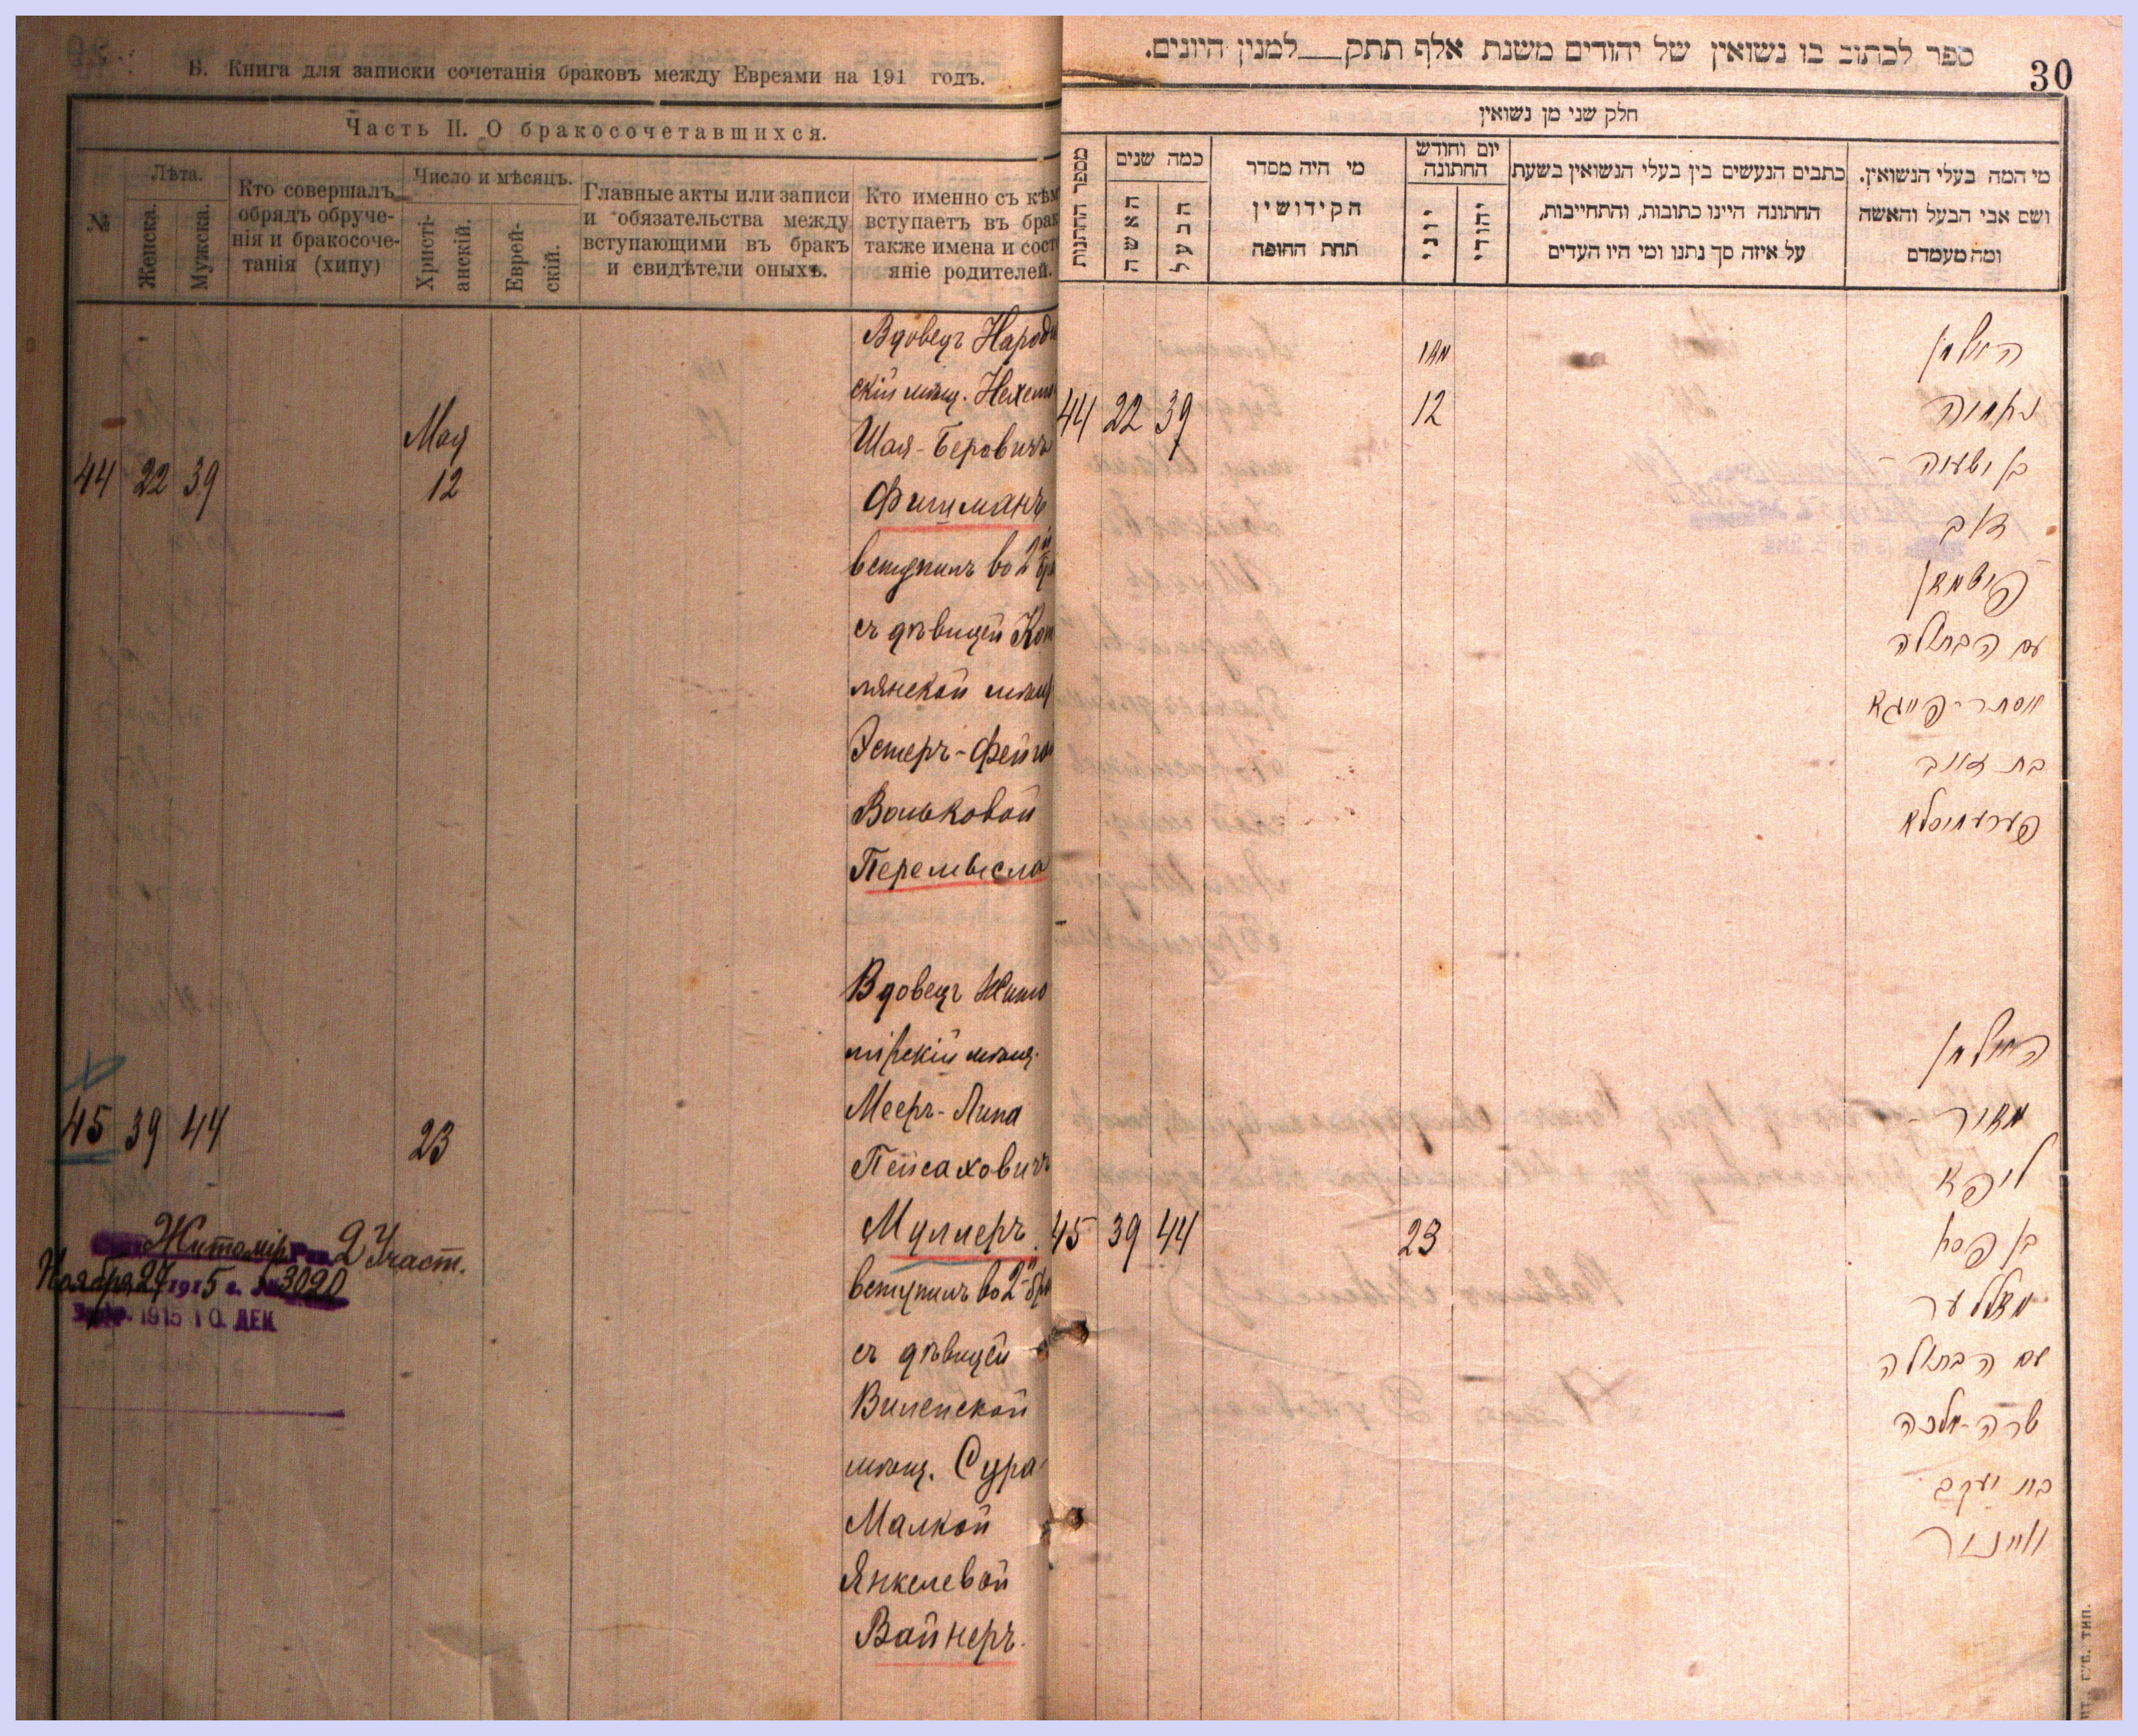 Б. Книга для записки сочетанія браковъ между Евреями на 191 годъ.
Часть II. О бракосочетавшихся.
№
Лѣта.
Женска.
Мужска.
Кто совершалъ
обрядъ обруче-
нія и бракосоче-
танія (хипу)
Число и мѣсяцъ.
Христі-
анскій.
Еврей-
скій.
Главные акты или записи
и обязательства между
вступающими въ бракъ
и свидѣтели оныхъ.
Кто именно съ кѣм
вступаетъ въ брак
также имена и сост
яніе родителей.
44 22 39
Мая
12
Вдовецъ Народи
скій мѣщ. Нехем
Шая-Беровичъ
Фишманъ
вступилъ во 2й бр
съ дѣвицей Кот
лянской мѣщ
Эстеръ-Фейго
Вольковой
Перемысла
45 39 44
23
Вдовецъ Жито
мірскій мѣщ.
Мееръ-Липа
Пейсаховичъ
Муллеръ
вступилъ во 2й бр
съ дѣвицей
Виленской
мѣщ. Сура
Малкой
Янкелевой
Вайнеръ.
Житомір 2 Участ.
Ноября 27 1915 г. № 3020
1915 10. ДЕК
ספר לכתוב בו נשואין של יהודים משנת אלף תתק למנין היונים.
30
חלק שני מן נשואין
מספר החתונות
כמה שנים
האשה
הבעל
מי היה מסדר
הקידושין
תחת החופה
יום וחודש
החתונה
יוני
יהודי
כתבים הנעשים בין בעלי הנשואין בשעת
החתונה היינו כתובות, והתחייבות,
על איזה סך נתנו ומי היו העדים
מי המה בעלי הנשואין.
ושם אבי הבעל והאשה
ומה מעמדם
44 22 39
מאי
12
האלמן
נחמיה
בן ישעיה-
דוב
פישמאן
עם הבתולה
אסתר-פייגא
בת זאב
פערעמיסלא
45 39 44
23
האלמן
מאיר-
ליפא
בן פסח
מוללער
עם הבתולה
שרה-מלכה
בת יעקב
ווײנער
ГУБ. ТИП.